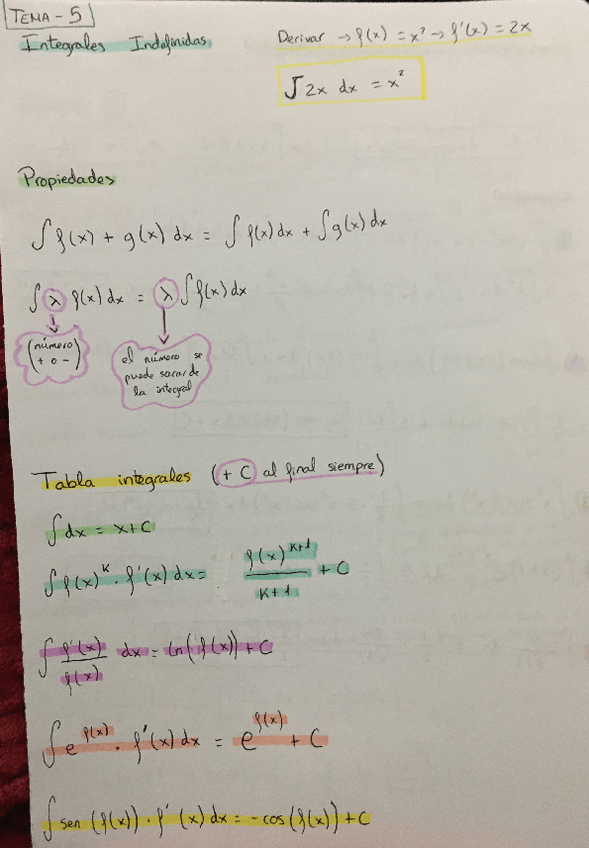 TEMA - 5
Integrales Indefinidas
Derivar → f(x) = x² → f'(x) = 2x
∫ 2x dx = x²
Propiedades
∫ f(x) + g(x) dx = ∫ f(x) dx + ∫ g(x) dx
∫ λ f(x) dx = λ ∫ f(x) dx
(número
+ o -)
el número se
puede sacar de
la integral
Tabla integrales (+ C al final siempre)
∫ dx = x + C
∫ f(x)^K · f'(x) dx = f(x)^(K+1) / (K+1) + C
∫ f'(x) / f(x) dx = ln(f(x)) + C
∫ e^f(x) · f'(x) dx = e^f(x) + C
∫ sen (f(x)) · f'(x) dx = - cos (f(x)) + C